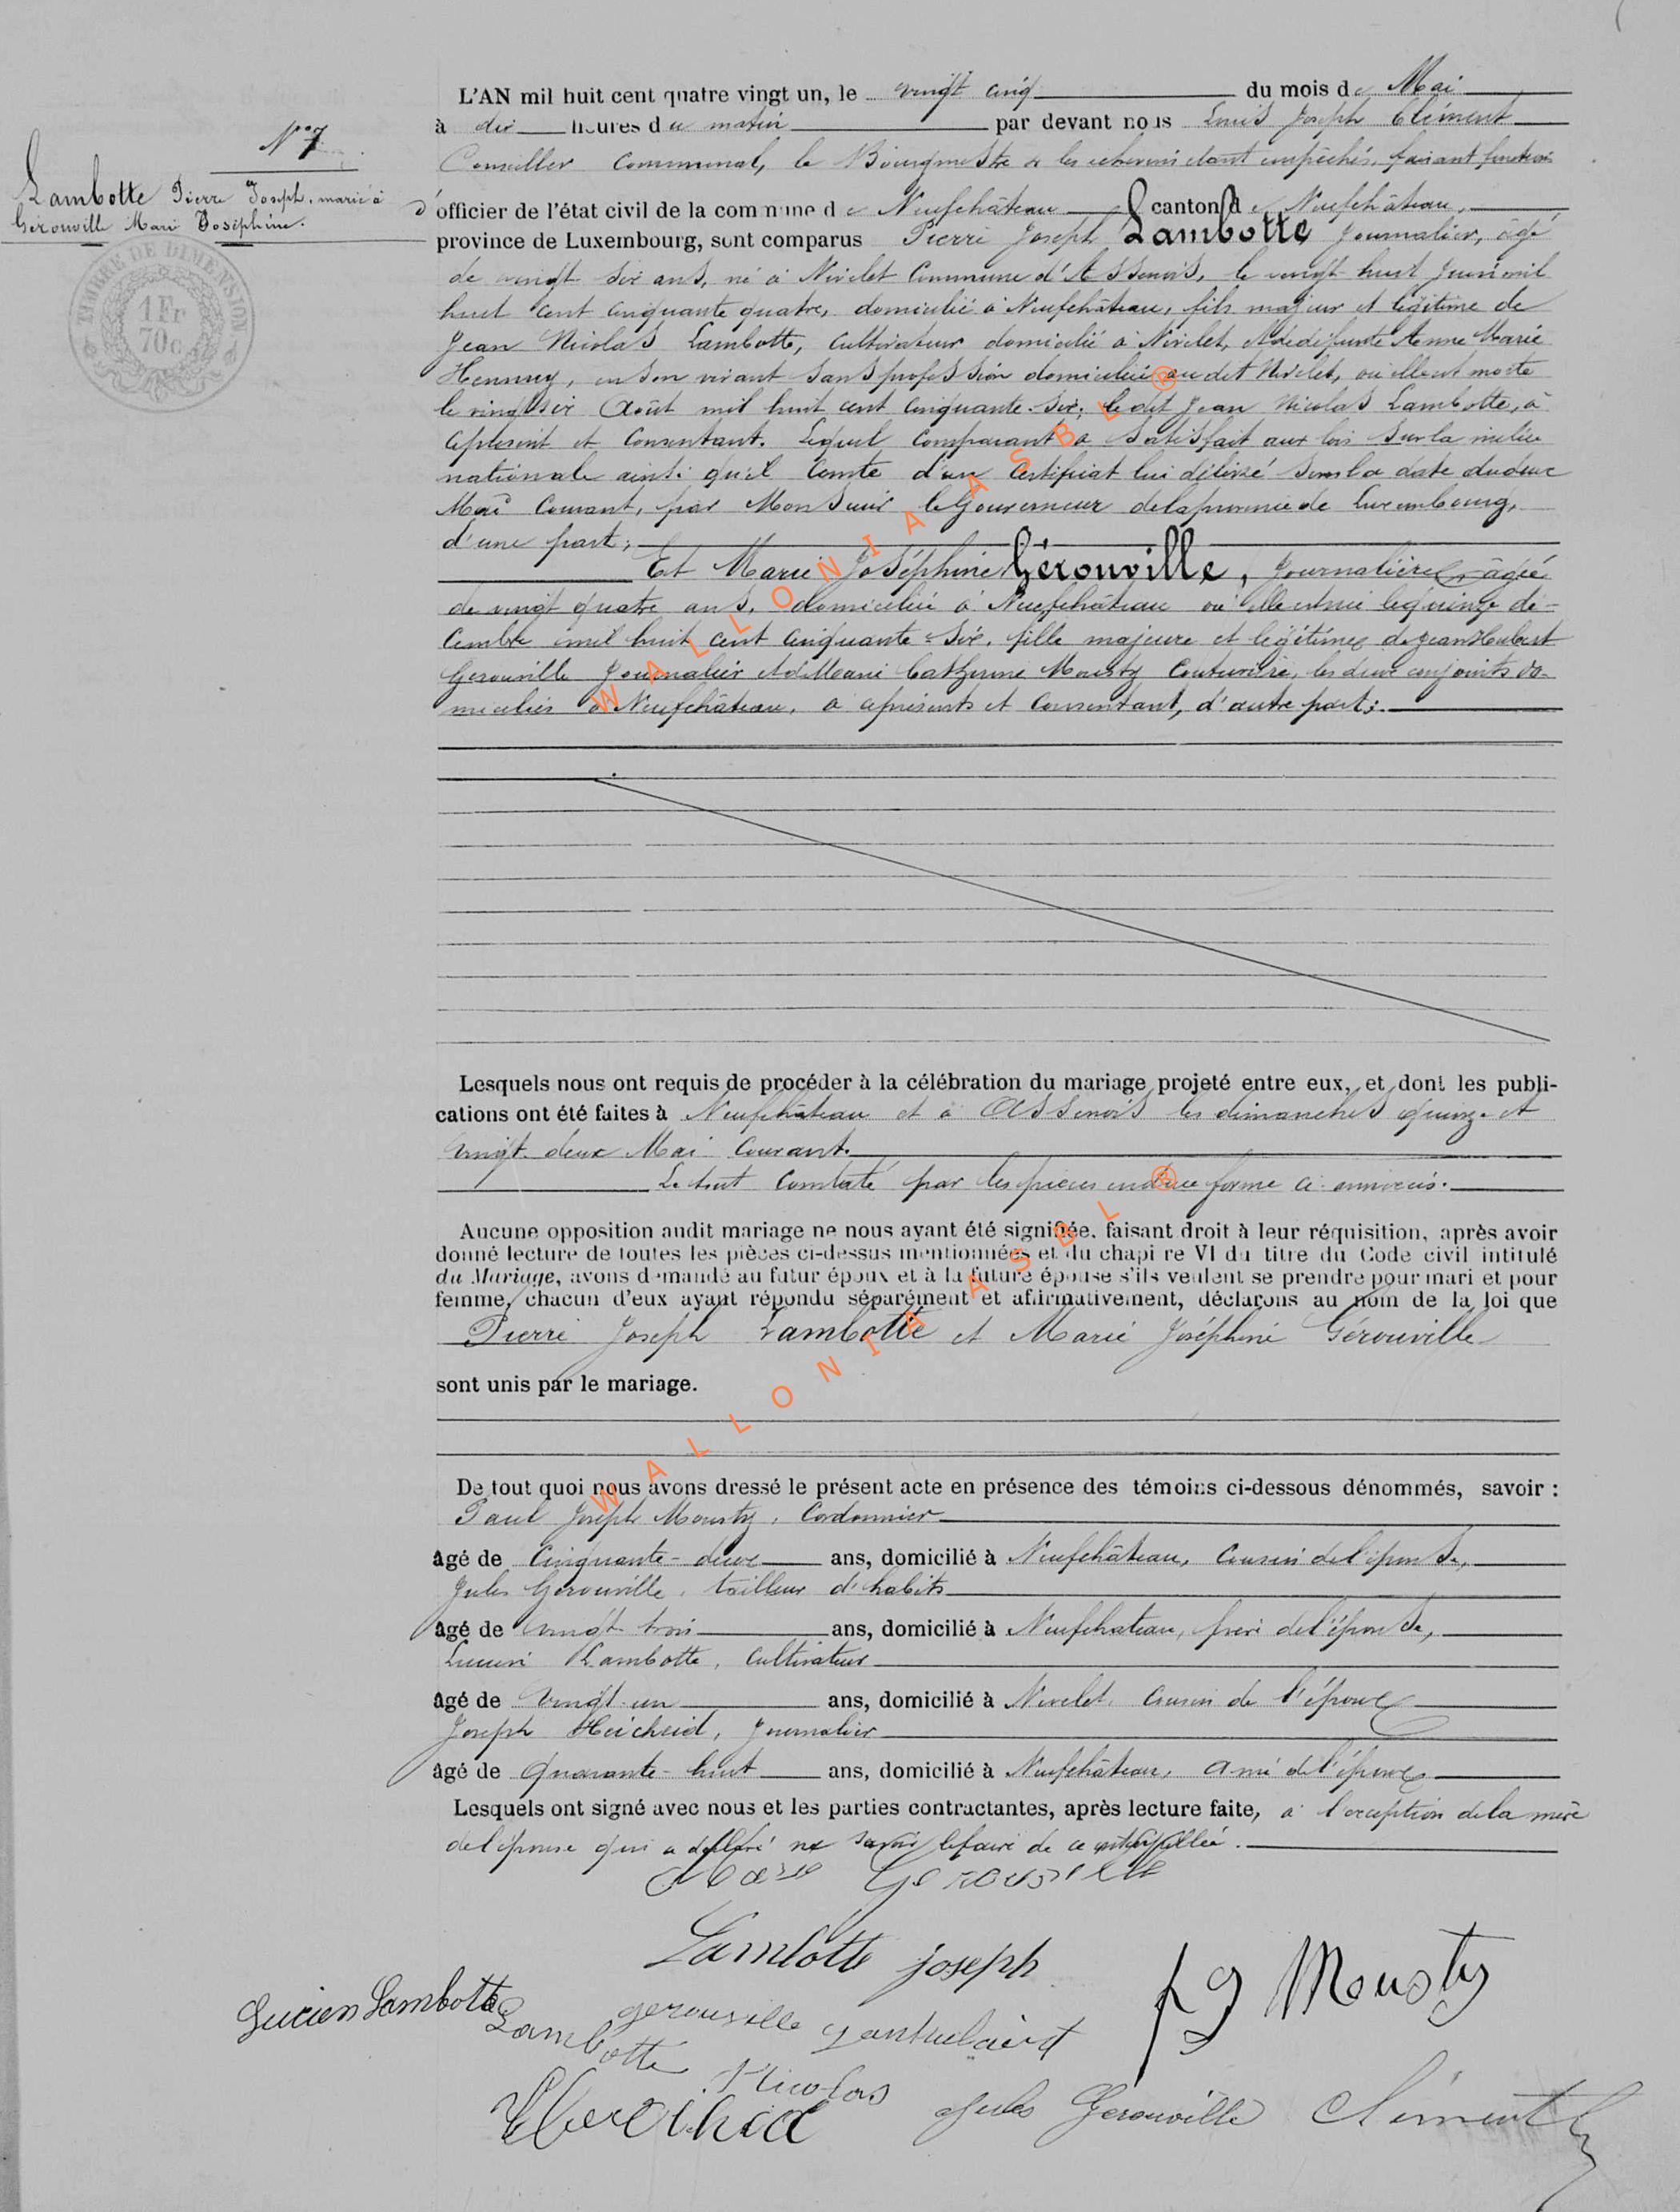 N° 7
Lambotte Pierre Joseph, marié à
Gérouville Marie Joséphine.
TIMBRE DE DIMENSION
1 Fr
70c
L'AN mil huit cent quatre vingt un, le vingt cinq du mois de Mai
à dix heures du matin par devant nous Louis Joseph Clément
Conseiller Communal, le Bourgmestre & les échevins étant empêchés, faisant fonctions
d'officier de l'état civil de la commune de Neufchâteau canton de Neufchâteau,
province de Luxembourg, sont comparus Pierre Joseph Lambotte Journalier, âgé
de vingt six ans, né à Nivelet Commune d'Assenois, le vingt huit Juin mil
huit cent cinquante quatre, domicilié à Neufchâteau, fils majeur et légitime de
Jean Nicolas Lambotte, Cultivateur domicilié à Nivelet, & de défunte Anne Marie
en son vivant sans profession domiciliée au dit Nivelet, où elle est morte
le vingt six Août mil huit cent cinquante-six; le dit Jean Nicolas Lambotte, à
ce présent et Consentant. Lequel Comparant a satisfait aux lois sur la milice
nationale ainsi qu'il Conste d'un Certificat lui délivré sous la date du deux
Mai Courant, par Monsieur le Gouverneur de la province de Luxembourg,
d'une part;
Et Marie Joséphine Gérouville, Journalière, âgée
de vingt quatre ans, domiciliée à Neufchâteau où elle est née le quinze dé-
cembre mil huit cent cinquante-six, fille majeure et légitime de Jean Hubert
Gerouville Journalier et de Marie Catherine Mousty Couturière, les deux conjoints do-
miciliés à Neufchâteau, à ce présents et Consentant, d'autre part;
Lesquels nous ont requis de procéder à la célébration du mariage projeté entre eux, et dont les publi-
cations ont été faites à Neufchâteau et à Assenois les dimanches quinze et
vingt-deux Mai Courant.
Le tout Constaté par les pièces en due forme ci-annexées.
Aucune opposition audit mariage ne nous ayant été signifiée, faisant droit à leur réquisition, après avoir
donné lecture de toutes les pièces ci-dessus mentionnées et du chapi re VI du titre du Code civil intitulé
du Mariage, avons demandé au futur époux et à la future épouse s'ils veulent se prendre pour mari et pour
femme, chacun d'eux ayant répondu séparément et affirmativement, déclarons au nom de la loi que
Pierre Joseph Lambotte et Marie Joséphine Gérouville
sont unis par le mariage.
De tout quoi nous avons dressé le présent acte en présence des témoins ci-dessous dénommés, savoir :
Paul Joseph Mousty, Cordonnier
âgé de Cinquante-deux ans, domicilié à Neufchâteau, Cousin de l'épouse,
Jules Gerouville, tailleur d'habits
âgé de vingt-trois ans, domicilié à Neufchateau, frère de l'épouse,
Lucien Lambotte, Cultivateur
âgé de vingt-un ans, domicilié à Nivelet, Cousin de l'époux
Joseph journalier
âgé de quarante-huit ans, domicilié à Neufchâteau, ami de l'époux
Lesquels ont signé avec nous et les parties contractantes, après lecture faite, à l'exception de la mère
de l'épouse qui a déclaré ne savoir le faire de ce interpellée.
Marie Gerouville
Lambotte joseph
p j Mousty
Lucien Lambotte
gerouville
Lambotte Nicolas
Jules Gerouville
Clément
WALLONIA ASBL ®
WALLONIA ASBL ®